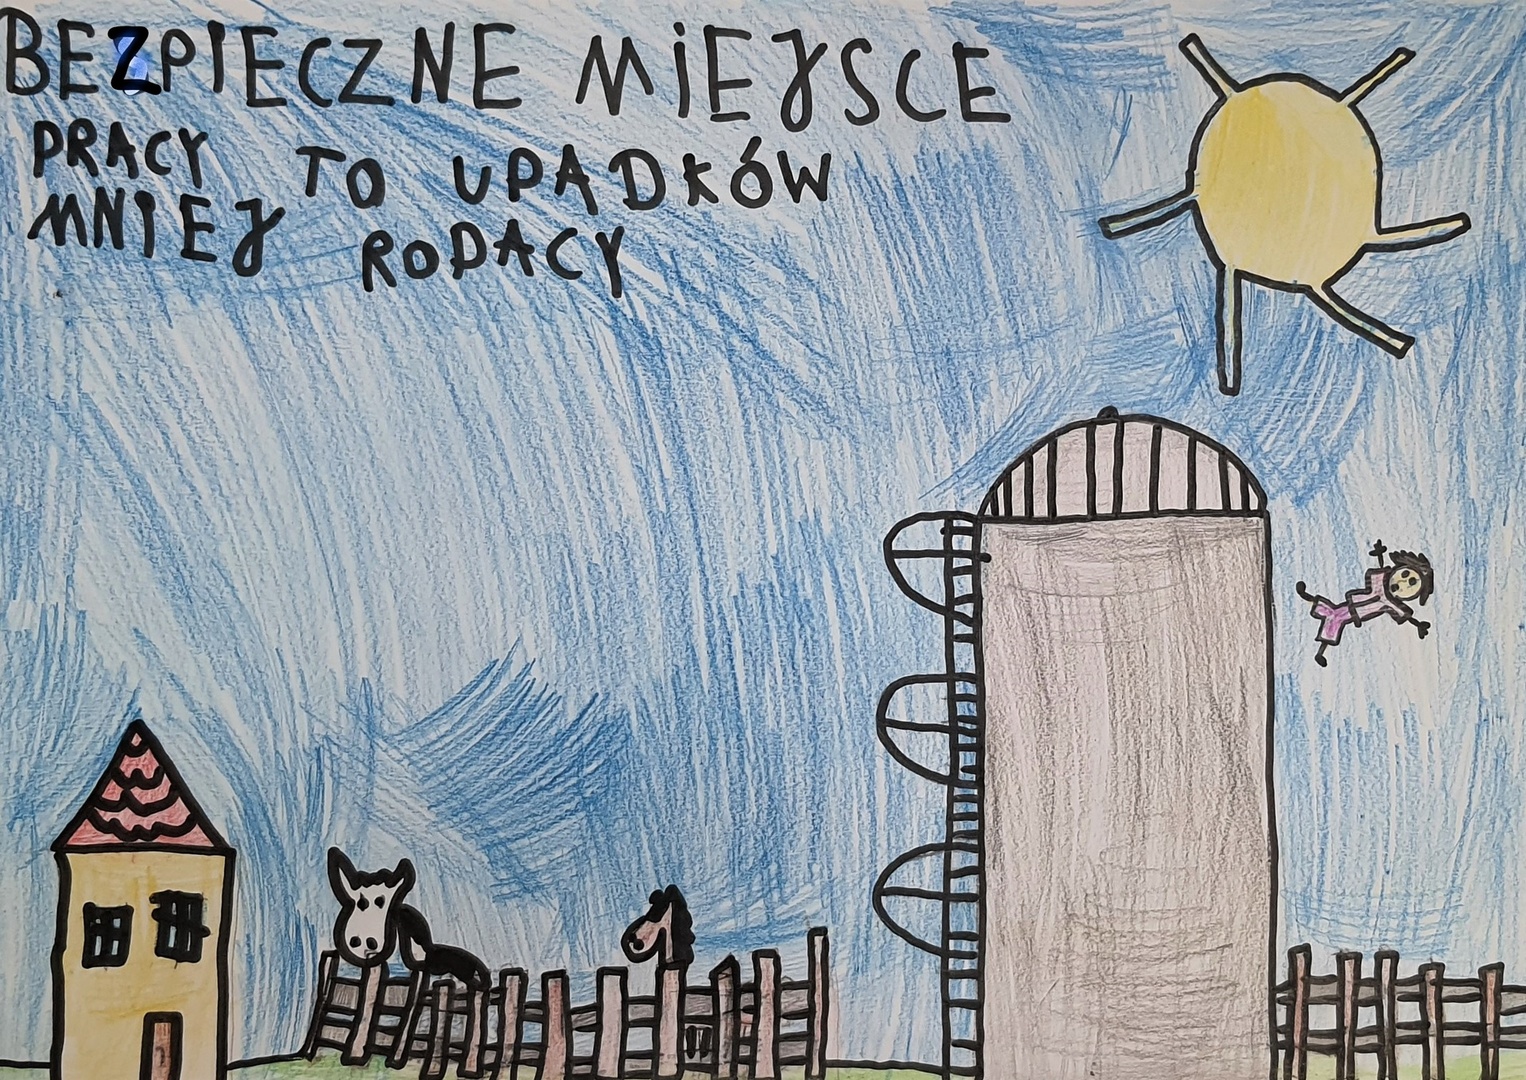 BEZPIECZNE MIEJSCE
PRACY TO UPADKÓW
MNIEJ RODACY